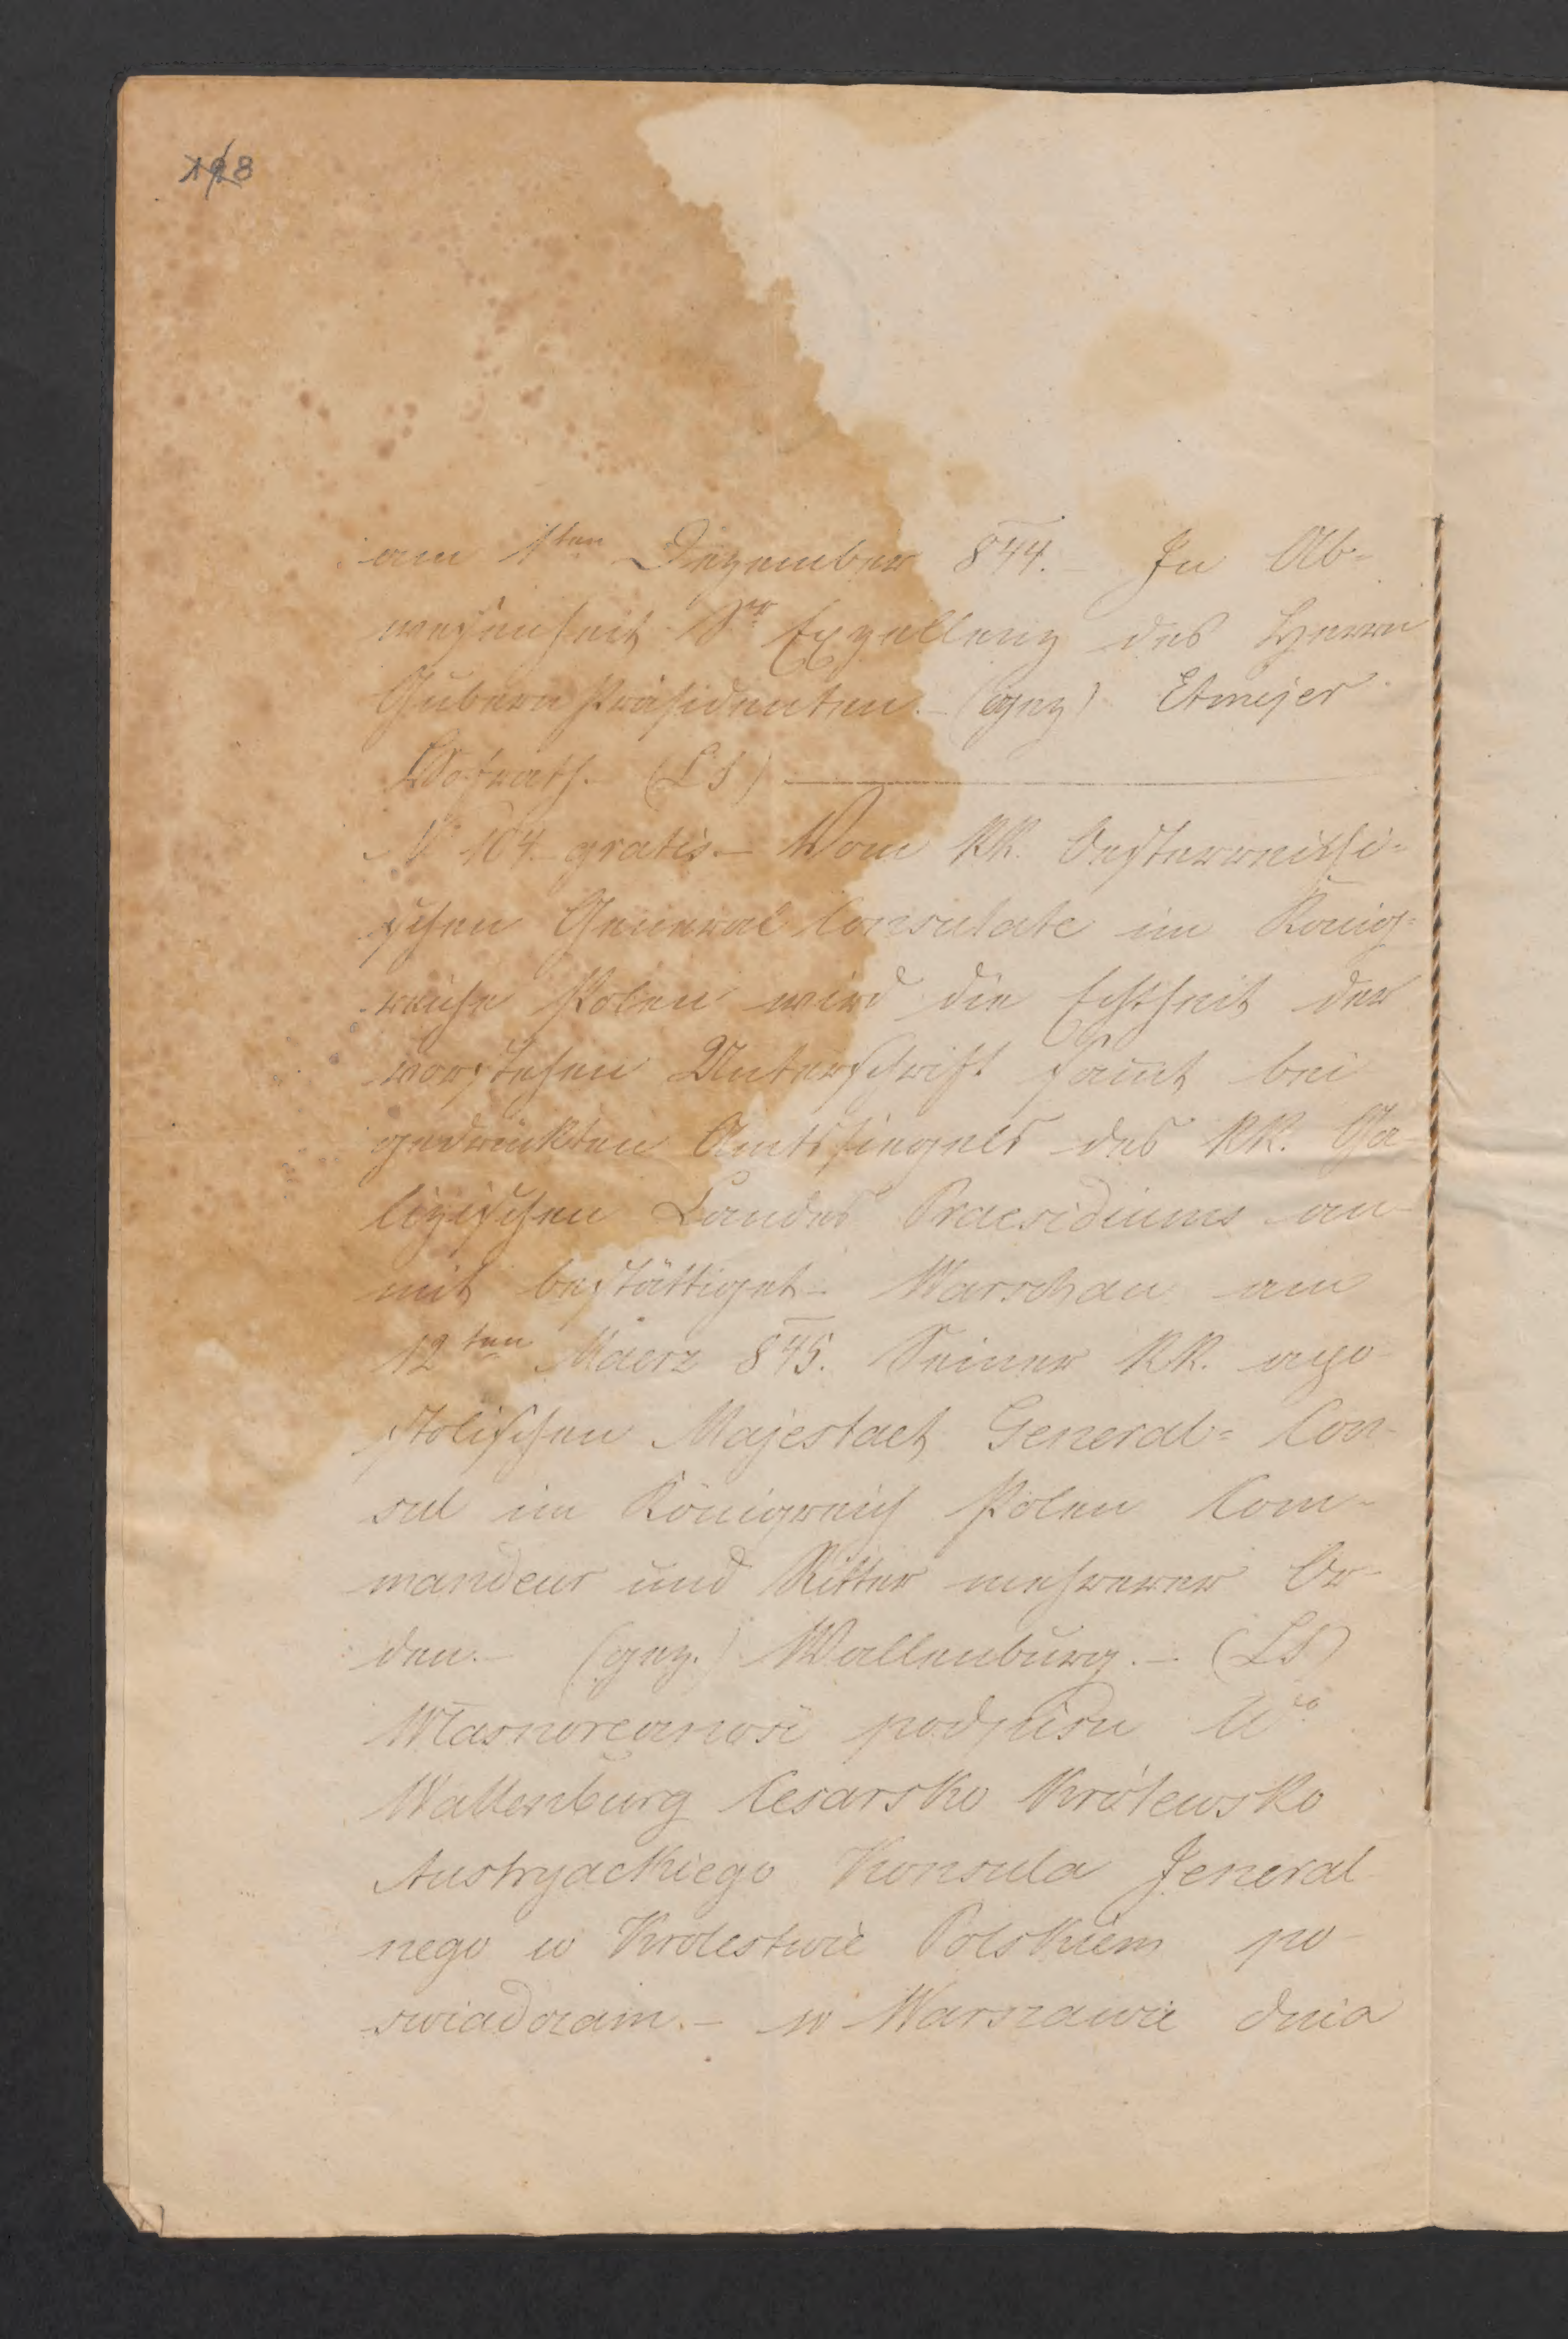 198
am 1ten Dezember 844.– In Ab=
wesenheit Sr Exzellenz des Herrn
Gubern Präsidenten.– (gez) Etmejer
Hofrath.– (LS)
N 104.– gratis.– Vom KK. Oesterreichi=
schen General Consulate im König=
reiche Polen wird die Echtheit der
vorstehen Unterschrift samt bei
gedrückten Amtssiegels des KK. Ga-
lizischen Landes Praesidiums an-
mit bestättiget.– Warschau am
12ten Maerz 845. Seiner KK. apo-
stolischen Majestaet General= Con-
sul im Königreich Polen Com-
mandeur und Ritter mehrerer Or-
den.– (gez.) Wallenburg.– (LS)
Własnoręcznosć podpisu Wo
Wallenburg Cesarsko Królewsko
Austryackiego Konsula Jeneral
nego w Krolestwie Polskiem po-
swiadczam.– w Warszawie dnia